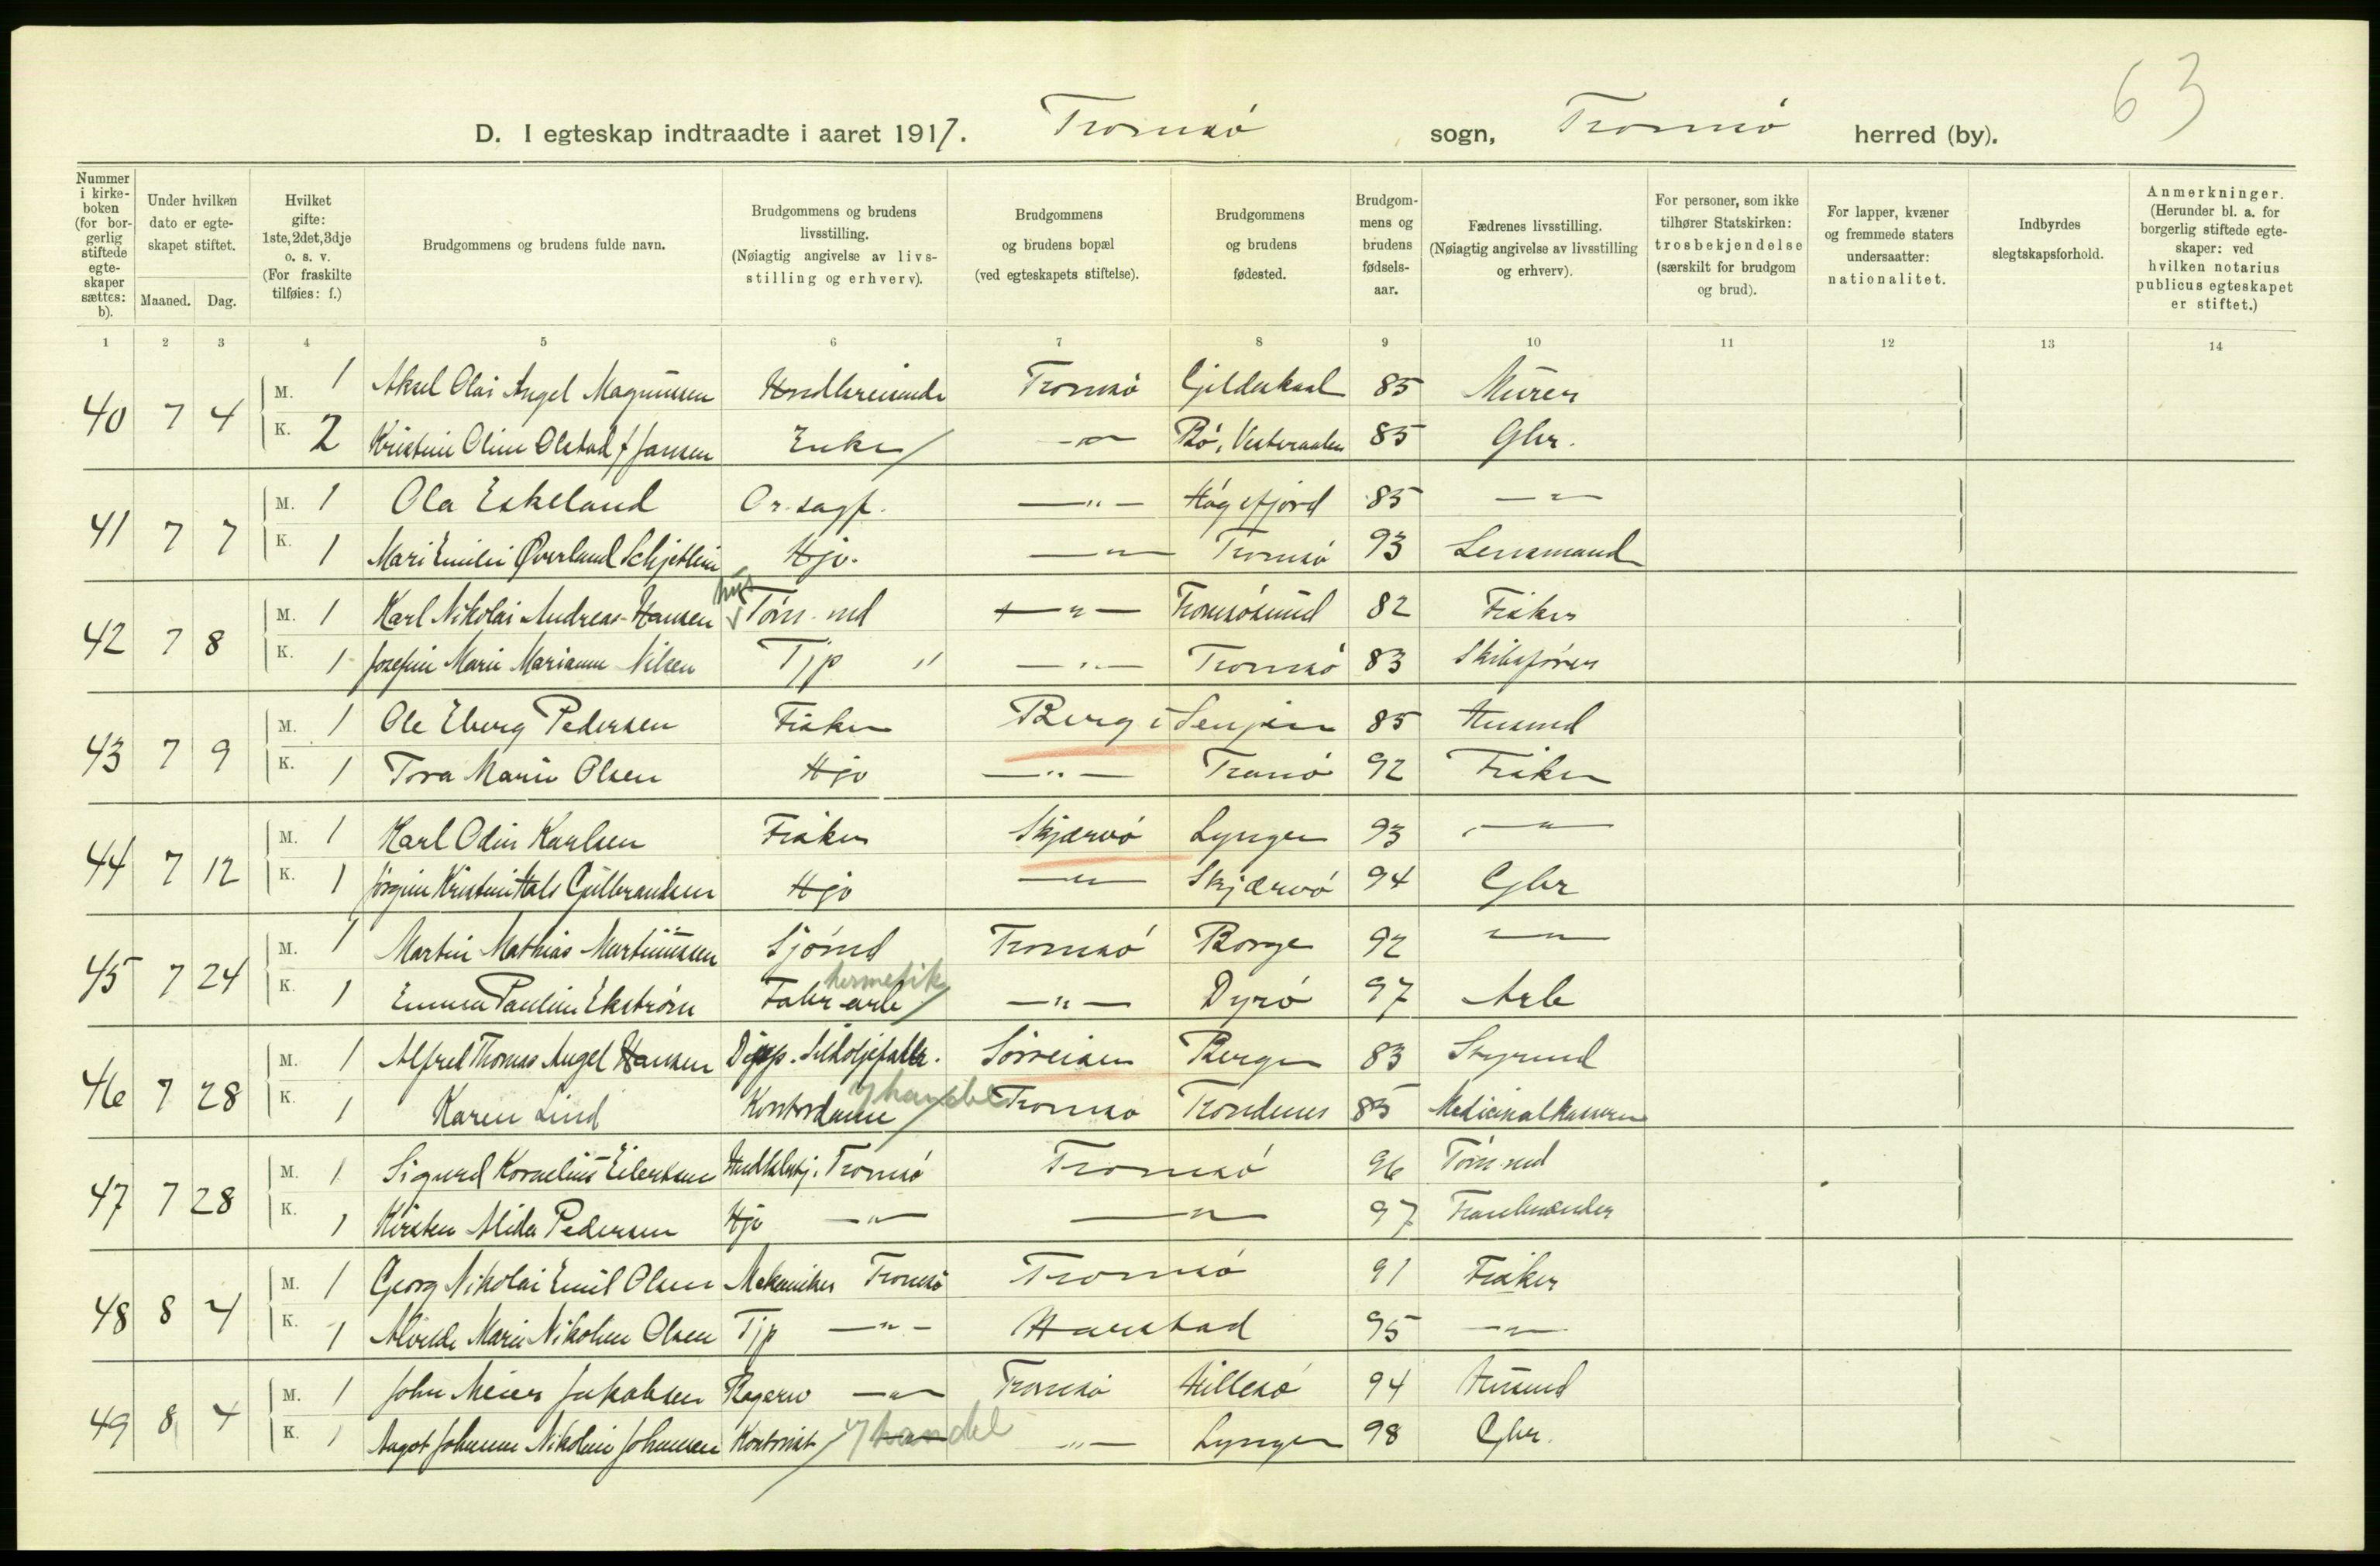 63
D. I egteskap indtraadte i aaret 1917. Tromsø sogn, Tromsø herred (by).
Nummer i kirke-boken (for bor-gerlig stiftede egte-skaper sættes: b).
Under hvilken dato er egte-skapet stiftet.
Maaned. Dag.
Hvilket gifte: 1ste, 2det, 3dje o. s. v. (For fraskilte tilføies: f.)
Brudgommens og brudens fulde navn.
Brudgommens og brudens livsstilling. (Nøiagtig angivelse av livs-stilling og erhverv).
Brudgommens og brudens bopæl (ved egteskapets stiftelse).
Brudgommens og brudens fødested.
Brudgom-mens og brudens fødsels-aar.
Fædrenes livsstilling. (Nøiagtig angivelse av livsstilling og erhverv).
For personer, som ikke tilhører Statskirken: trosbekjendelse (særskilt for brudgom og brud).
For lapper, kvæner og fremmede staters undersaatter: nationalitet.
Indbyrdes slegtskapsforhold.
Anmerkninger. (Herunder bl. a. for borgerlig stiftede egte-skaper: ved hvilken notarius publicus egteskapet er stiftet.)
1 2 3 4 5 6 7 8 9 10 11 12 13 14
40 7 4 M. 1 Aksel Olai Angel Magnussen Handlsreisende Tromsø Gildeskaal 85 Murer
K. 2 Kristine Oline Olstad f Jansen Enke —"— Bø, Vesteraalen 85 Gbr.
41 7 7 M. 1 Ola Eskeland O.r.sagf. —"— Høgsfjord 85 —"—
K. 1 Mari Emilie Øverland Schjetlein Hjv. —"— Tromsø 93 Lensmand
42 7 8 M. 1 Karl Nikolai Andreas Hansen hus Tøm.md —"— Tromsøsund 82 Fisker
K. 1 Josefine Marie Marianne Nilsen Tjp " —"— Tromsø 83 Skibsfører
43 7 9 M. 1 Ole Eberg Pedersen Fisker Berg i Senjen 85 Husmd
K. 1 Tora Marie Olsen Hjv —"— Tranø 92 Fisker
44 7 12 M. 1 Karl Odin Karlsen Fisker Skjærvø Lyngen 93 —"—
K. 1 Jørgine Kristine Hals Gulbrandsen Hjv —"— Skjærvø 94 Gbr
45 7 24 M. 1 Martin Mathias Martinussen Sjømd Tromsø Borge 92 —"—
K. 1 Emma Pauline Ekstrøm Fabr.arb hermetik —"— Dyrø 97 Arb
46 7 28 M. 1 Alfred Thomas Angel Hansen Disp. Sildoljefabr. Sørreisen Bergen 83 Styrmd
K. 1 Karen Lind Kontordame handel Tromsø Trondenes 85 Medicinalkasserer
47 7 28 M. 1 Sigurd Kornelius Eilertsen Handlsbetj. Tromsø Tromsø 96 Tøm.md
K. 1 Kirsten Alida Pedersen Hjv —"— —"— 97 Tranbrænder
48 8 4 M. 1 Georg Nikolai Emil Olsen Mekaniker Tromsø Tromsø 91 Fisker
K. 1 Alvilde Marie Nikoline Olsen Tjp —"— Harstad 95 —"—
49 8 4 M. 1 John Meier Jakobsen Bagersv —"— Tromsø Hillesø 94 Husmd
K. 1 Aagot Johanne Nikoline Johansen Kontorist handel —"— Lyngen 98 Gbr.